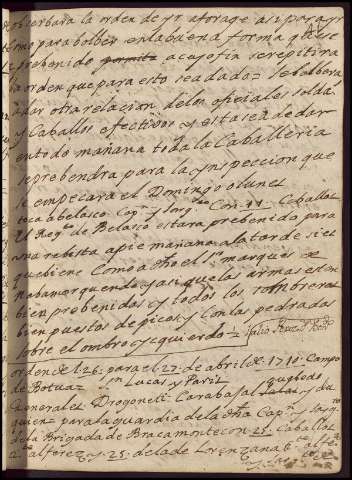 obserbara la orden de yr a forage asi para yr
como para bolber en la buena forma q̃ se
prebenido permite a cuyo fin se repitira
la orden que para esto sea dado = se bolbera
a dar otra relacion de los oficiales solda
y Caballos efectibos y esta sea de dar
en todo mañana toda la Caballeria
se prebendra para la ynspeccion que
se empeçara el Domingo o lunes
toca a belasco Cap.n y Sarg.to Con 11 Caballos
El Reg.to de Belasco estara prebenido para
una rebista a pie mañana a la tarde si el
quebiene Como a d̃ho el S.r marques de
y a sanque las armas esten
bien probenidas y todos los sombreros
bien puestos de picos y Con las pedradas
sobre el ombro yzquierdo =
orden del 26 para el 27 de abril de 1710 Campo
de Botua = S.n Lucas y Paris
Generales Drogoneli Carabajal
quien para la guardia de la d̃ha Cap.n y Sarg.to
de la Brigada de Bracamonte con 25 Caballos
alferez y 25 de la de Lorenzana